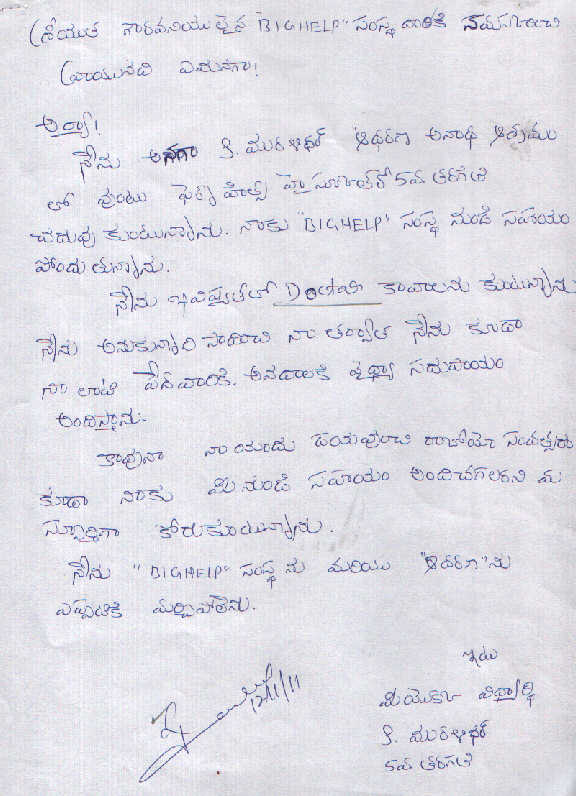 శ్రీయుత గౌరవనీయులైన "BIGHELP" సంస్థ వారికి నమస్కరించి
వ్రాయునది ఏమనగా!
అర్యా!
నేను అనగా కె. మురళీధర్ ఆధరణ అనాథ ఆశ్రమం
లో వుంటు హైస్కూల్లో 8వ తరగతి
చదువు కుంటున్నాను. నాకు "BIGHELP" సంస్థ నుండి సహాయం
పోందుతున్నాను.
నేను భవిష్యత్‌లో Doctor కావాలను కుంటున్నాను
నేను అనుకున్నది సాధించి నా తర్వాత నేను కూడా
నా లాటి పేదవారికి. అనాదలకి విధ్యా సదుపాయం
అందిస్తాను.
కావునా నా యందు దయవుంచి రాబోయే సంవత్సరం
కూడా నాకు మీ నుండి సహాయం అందించగలరని మ
స్ఫూర్తిగా కోరుకుంటున్నాను.
నేను "BIGHELP" సంస్థ ను మరియు "ఆదరణ" ను
ఎప్పటికి మర్చిపోలేను.
ఇట్లు
మీయొక్క విద్యార్థి
కె. మురళీధర్
8వ తరగతి
12/11/11